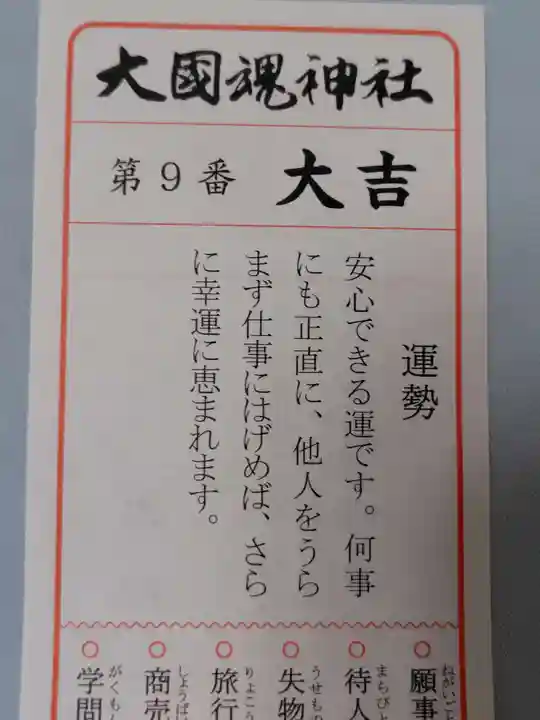 大國魂神社
第9番 大吉
運勢
安心できる運です。何事
にも正直に、他人をうら
まず仕事にはげめば、さら
に幸運に恵まれます。
○願事
ねがいごと
○待人
まちびと
○失物
うせもの
○旅行
りょこう
○商売
しょうばい
○学問
がくもん